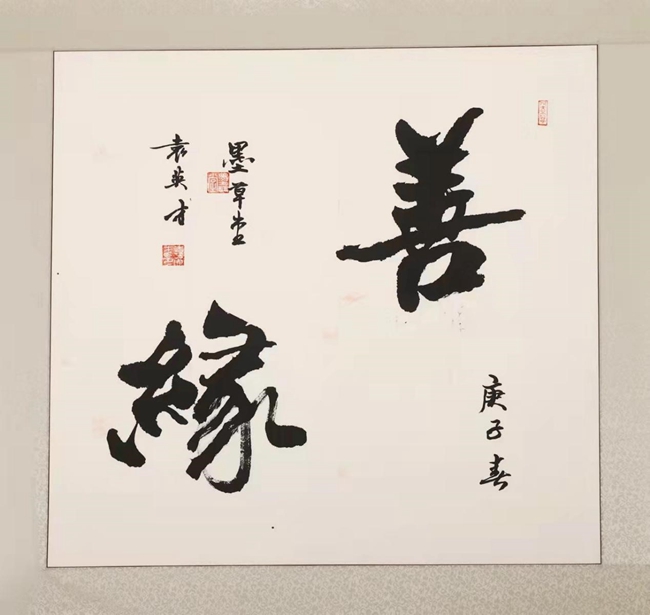 善
緣
庚子春
墨草堂
袁英才